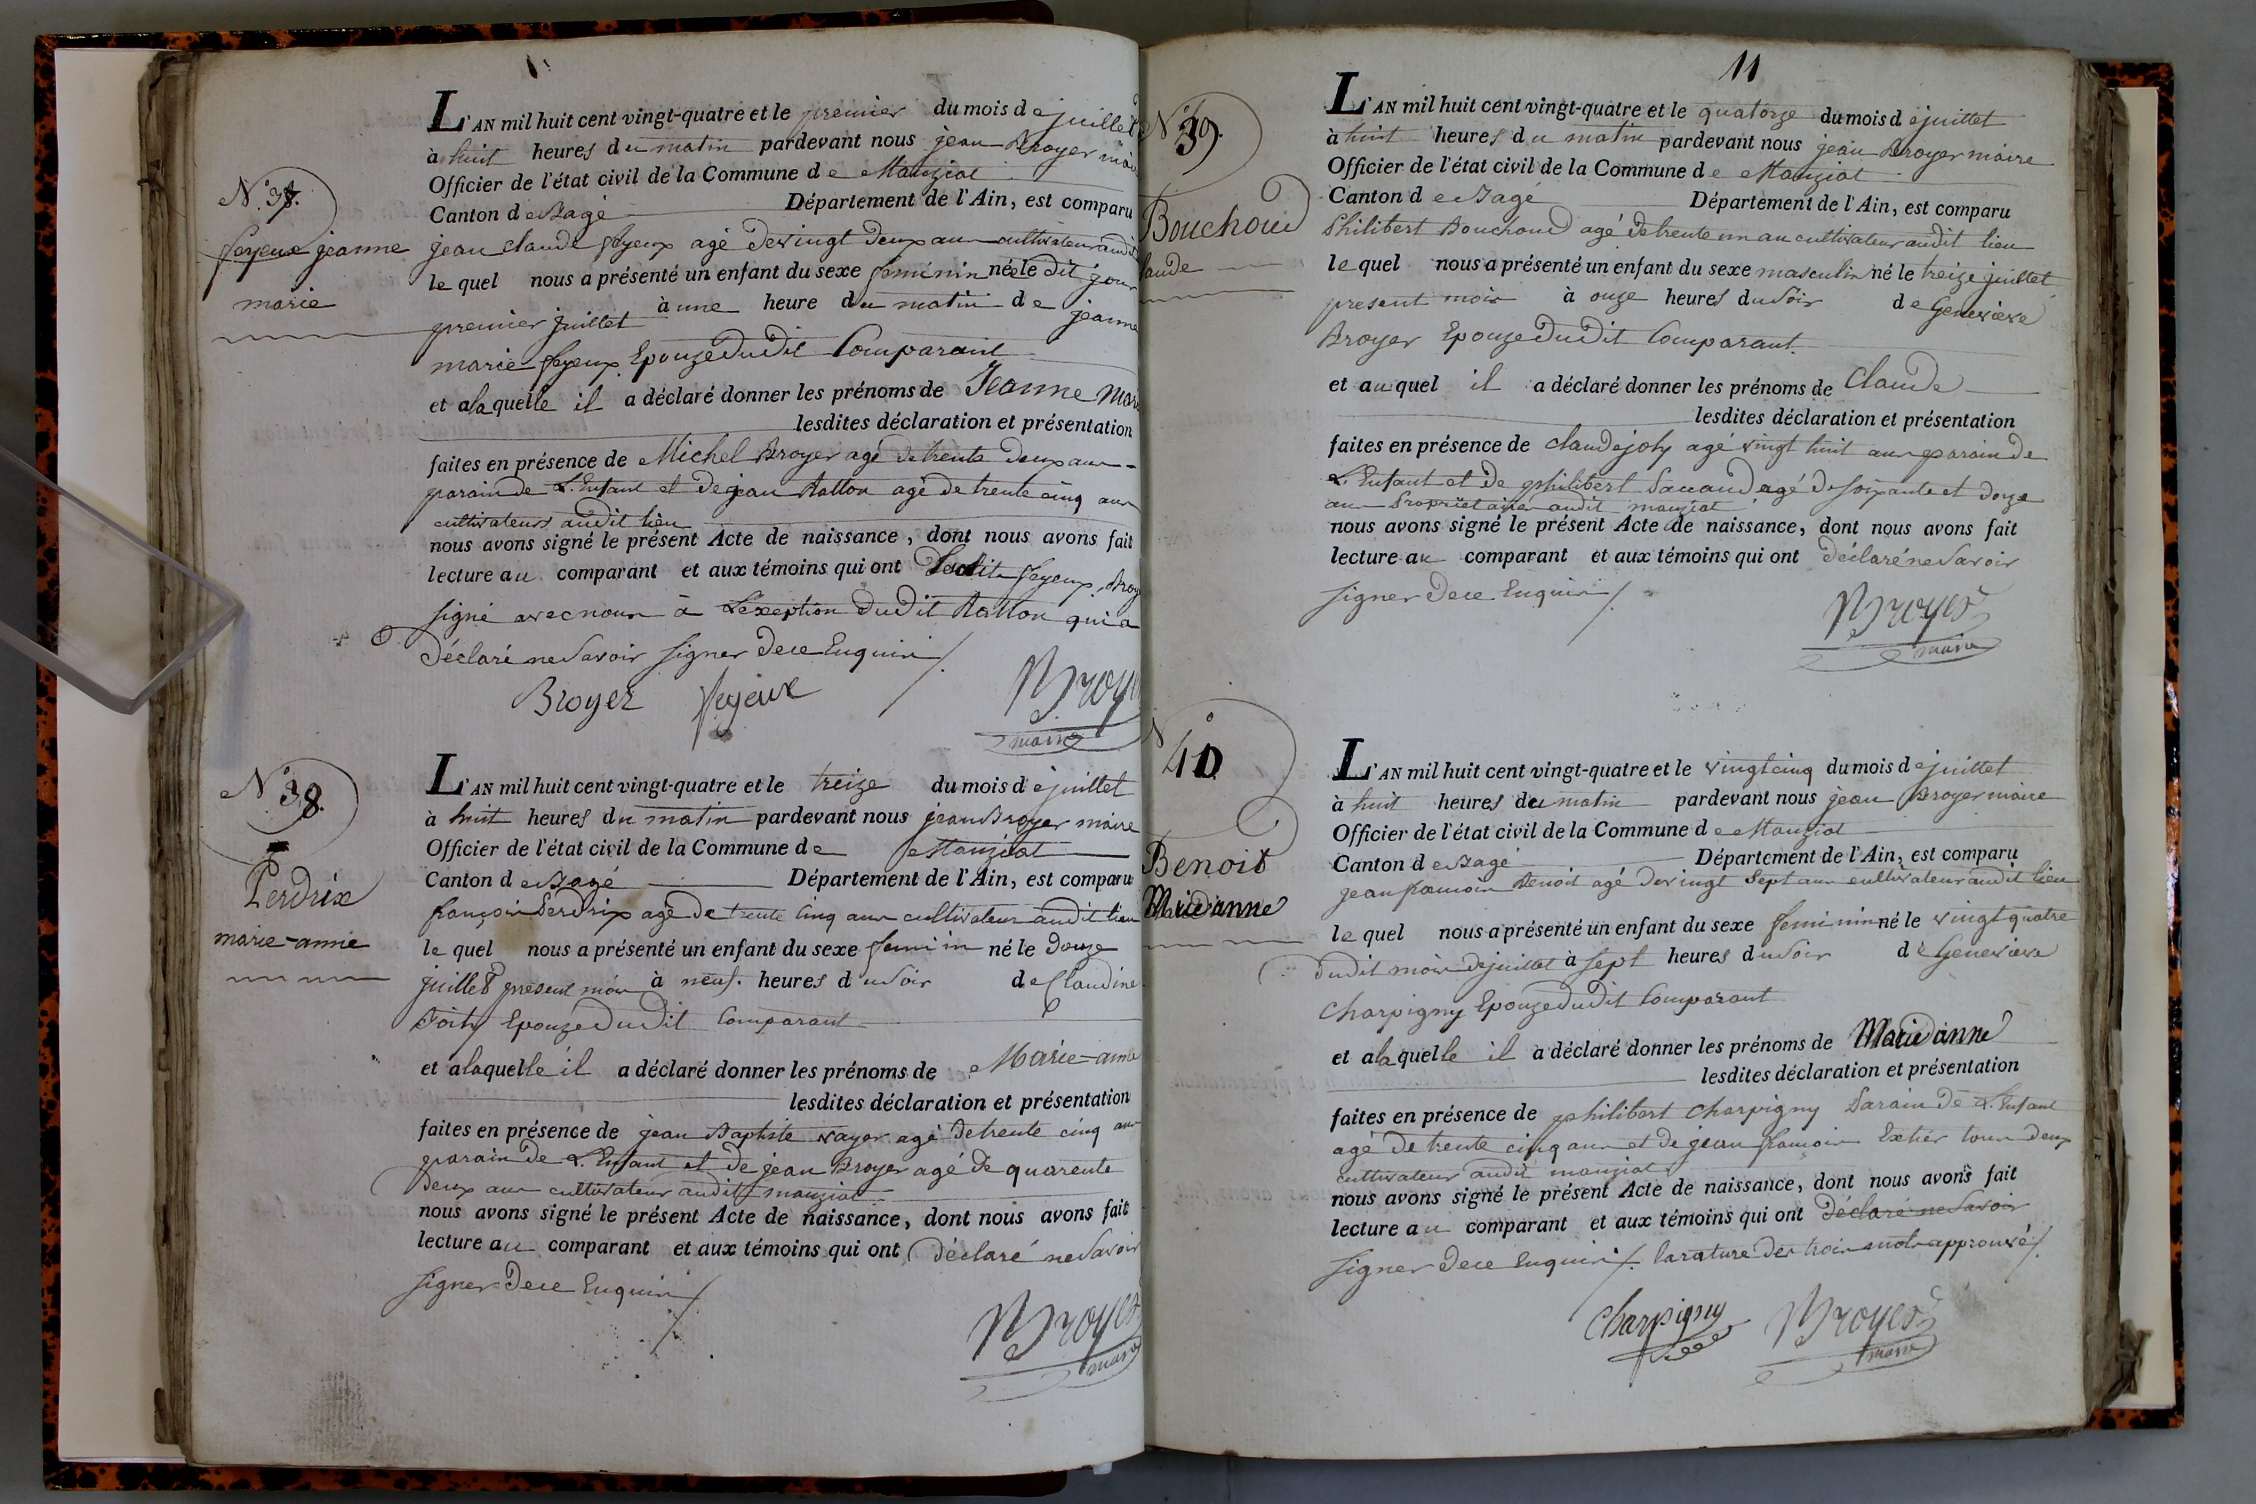 N.° 37.
feyeux jeanne
marie
L'AN mil huit cent vingt-quatre et le premier du mois de juillet
à huit heures du matin pardevant nous jean Broyer maire
Officier de l'état civil de la Commune de Manziat
Canton de Bagé Département de l'Ain, est comparu
jean claude feyeux agé de vingt deux ans cultivateur audit
lequel nous a présenté un enfant du sexe feminin née le dit jour
premier juillet à une heure du matin de jeanne
marie feyeux Epouze dudit Comparant
et a laquelle il a déclaré donner les prénoms de Jeanne Marie
lesdites déclaration et présentation
faites en présence de Michel Broyer agé de trente deux ans
parain de L'Enfant et de jean Ratton agé de trente cinq ans
cultivateurs audit lieu
nous avons signé le présent Acte de naissance, dont nous avons fait
lecture au comparant et aux témoins qui ont feyeux, Broy
signé avec nous à Lexeption dudit Ratton qui a
déclaré ne Savoir signer de ce Enquis /.
Broyer feyeux Broyer
maire
N.° 38.
Perdrix
marie-anne
L'AN mil huit cent vingt-quatre et le treize du mois de juillet
à huit heures du matin pardevant nous jean Broyer maire
Officier de l'état civil de la Commune de Manziat
Canton de Bagé Département de l'Ain, est comparu
françois Perdrix agé de trente cinq ans cultivateur audit lieu
le quel nous a présenté un enfant du sexe feminin né le douze
juillet présent mois à neuf heures du Soir de Claudine
Epouze dudit Comparant
et a laquelle il a déclaré donner les prénoms de Marie-anne
lesdites déclaration et présentation
faites en présence de jean Baptiste vayer agé de trente cinq ans
parain de L'Enfant et de jean Broyer agé de quarente
deux ans cultivateur audit manziat
nous avons signé le présent Acte de naissance, dont nous avons fait
lecture au comparant et aux témoins qui ont déclaré ne Savoir
signer de ce Enquis /.
Broyer
maire
11
N.° 39.
Bouchoud
laude
L'AN mil huit cent vingt-quatre et le quatorze du mois de juillet
à huit heures du matin pardevant nous jean Broyer maire
Officier de l'état civil de la Commune de Manziat
Canton de Bagé Département de l'Ain, est comparu
Philibert Bouchoud agé de trente un an cultivateur audit lieu
lequel nous a présenté un enfant du sexe masculin né le treize juillet
present mois à onze heures du Soir de Genevieve
Broyer Epouze dudit Comparant.
et au quel il a déclaré donner les prénoms de Claude
lesdites déclaration et présentation
faites en présence de claude joly agé vingt huit ans parain de
L'Enfant et de philibert agé de soixante et douze
ans Propriétaire audit manziat
nous avons signé le présent Acte de naissance, dont nous avons fait
lecture au comparant et aux témoins qui ont déclaré ne Savoir
signer de ce Enquis /.
Broyer
maire
N.° 40
Benoit
Marie anne
L'AN mil huit cent vingt-quatre et le vingt cinq du mois de juillet
à huit heures du matin pardevant nous jean Broyer maire
Officier de l'état civil de la Commune de Manziat
Canton de Bagé Département de l'Ain, est comparu
jean francois Benoit agé de vingt Sept ans cultivateur audit lieu
le quel nous a présenté un enfant du sexe feminin né le vingt quatre
dudit mois de juillet à sept heures du Soir de Genevieve
Charpigny Epouze dudit Comparant
et a laquelle il a déclaré donner les prénoms de Marie anne
lesdites déclaration et présentation
faites en présence de philibert Charpigny Parain de L'Enfant
agé de trente cinq ans et de jean francois tous deux
cultivateur audit manziat
nous avons signé le présent Acte de naissance, dont nous avons fait
lecture au comparant et aux témoins qui ont déclaré ne Savoir
signer de ce Enquis /. la rature des trois mots approuvé /.
Charpigny Broyer
maire